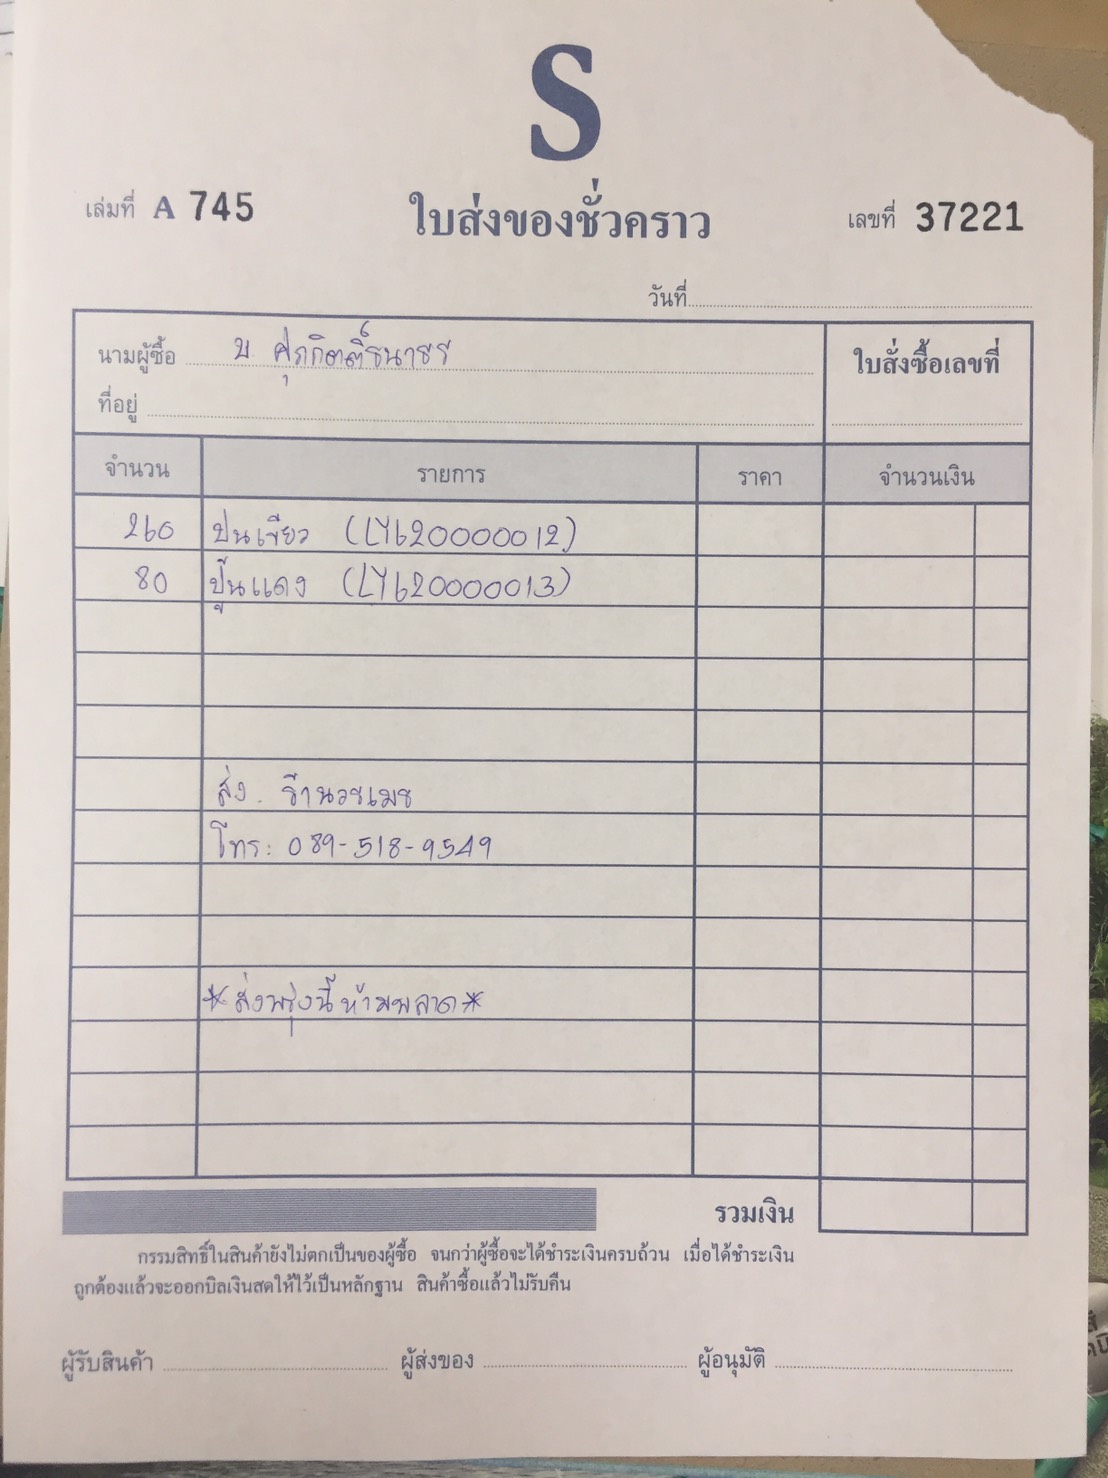 S
เล่มที่ A 745
ใบส่งของชั่วคราว
เลขที่ 37221
วันที่
นามผู้ซื้อ บ. ศุภกิตติ์ธนาธร
ใบสั่งซื้อเลขที่
ที่อยู่
จำนวน รายการ ราคา จำนวนเงิน
260 ปูนเขียว (LY620000012)
80 ปูนแดง (LY620000013)
ส่ง.
โทร: 089-518-9549
*ส่งพรุ่งนี้ห้ามพลาด*
รวมเงิน
กรรมสิทธิ์ในสินค้ายังไม่ตกเป็นของผู้ซื้อ จนกว่าผู้ซื้อจะได้ชำระเงินครบถ้วน เมื่อได้ชำระเงิน
ถูกต้องแล้วจะออกบิลเงินสดให้ไว้เป็นหลักฐาน สินค้าซื้อแล้วไม่รับคืน
ผู้รับสินค้า ผู้ส่งของ ผู้อนุมัติ